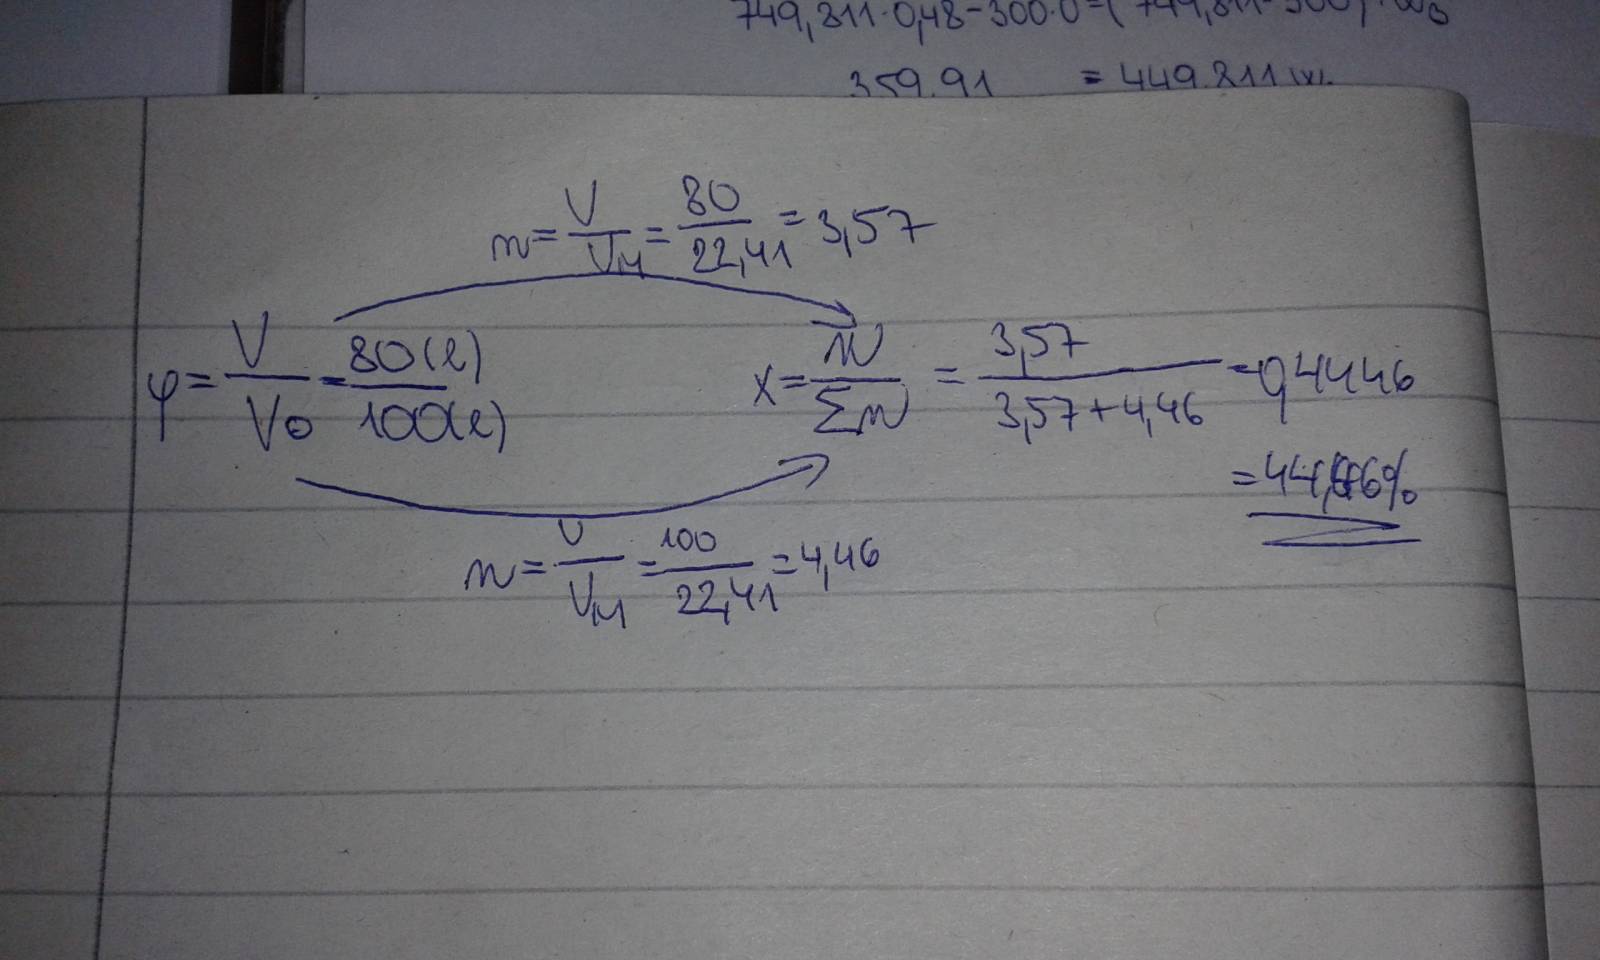 749,811·0,48-300·0=(749,811-300)·w₃
359,91 = 449,811 w₃
n = V/V_M = 80/22,41 = 3,57
φ = V/V₀ = 80(l)/100(l)
x = n/Σn = 3,57/(3,57+4,46) = 0,4446
= 44,46%
n = V/V_M = 100/22,41 = 4,46